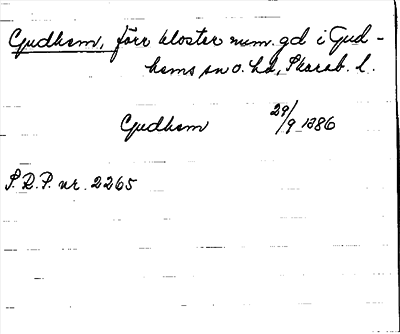 Gudhem, förr kloster num. gd i Gud-
hems sn o. hd, Skarab. l.
Gudhem 29/9 1386
S.R.P. nr. 2265